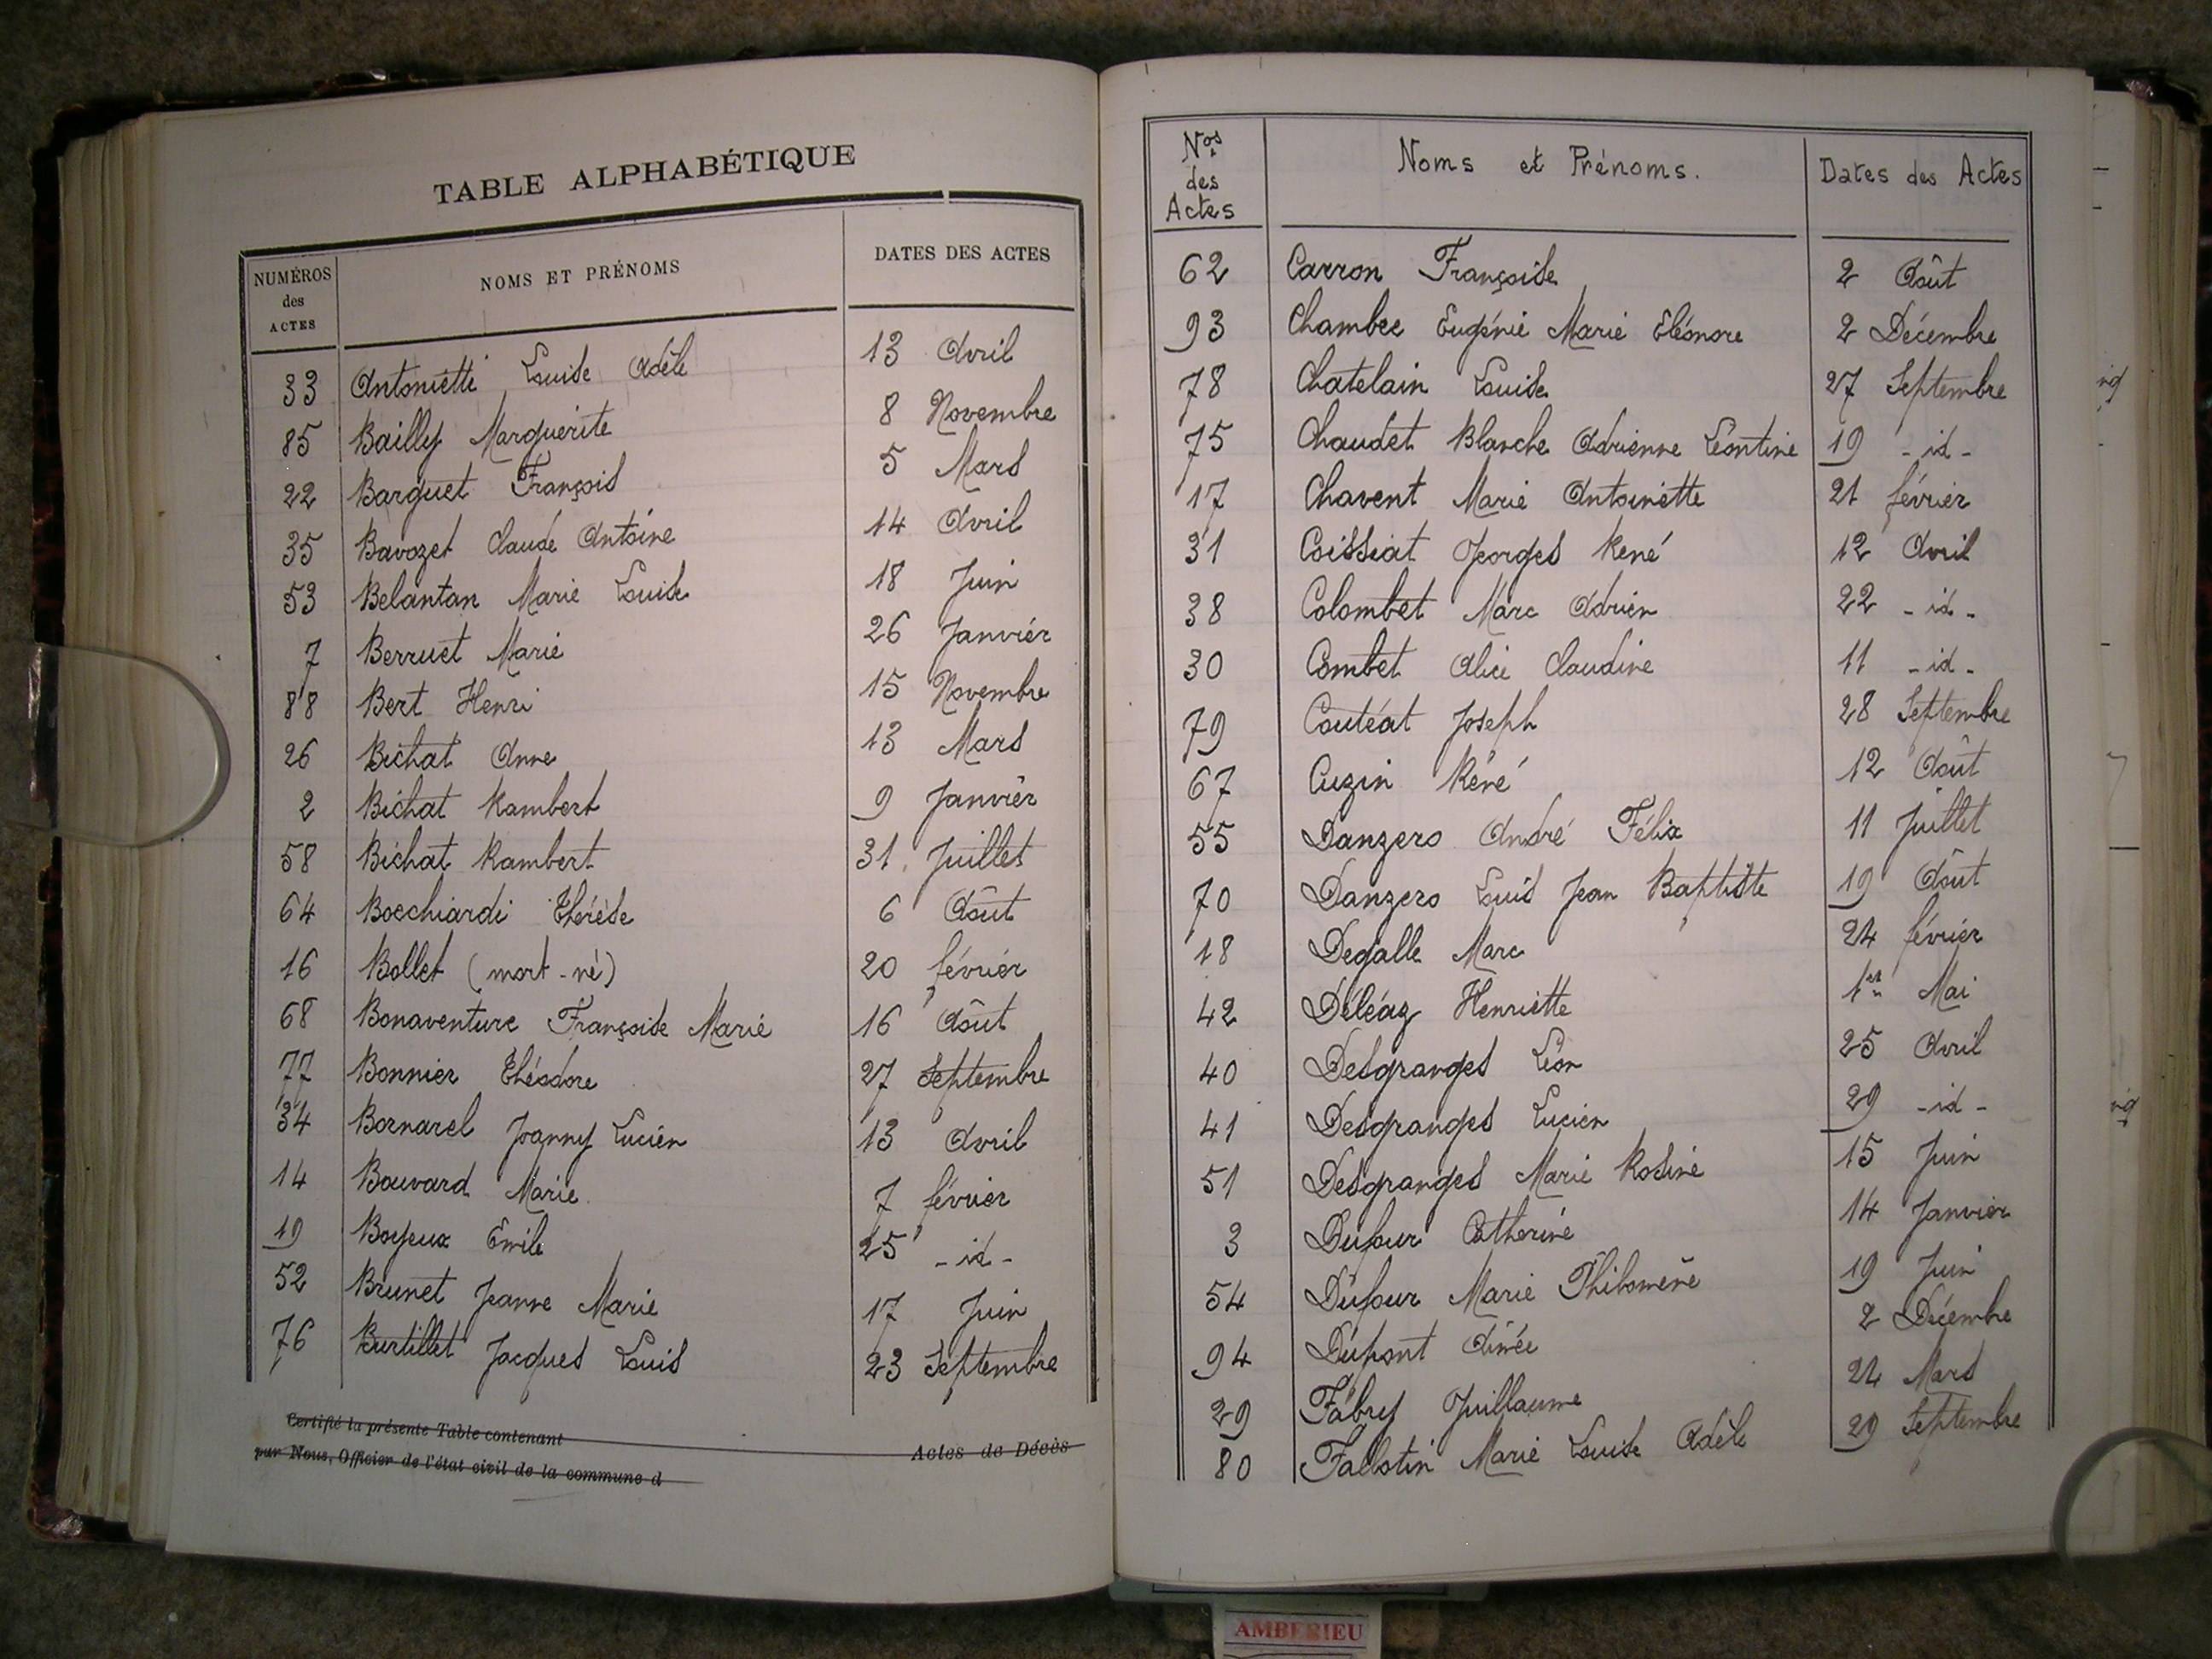 TABLE ALPHABÉTIQUE
NUMÉROS des ACTES NOMS ET PRÉNOMS DATES DES ACTES
33 Antonietti Louise Adèle 13 Avril
85 Bailly Marguerite 8 Novembre
22 Barquet François 5 Mars
35 Bavozet Claude Antoine 14 Avril
53 Belantan Marie Louise 18 Juin
7 Berruet Marie 26 Janvier
88 Bert Henri 15 Novembre
26 Bichat Anne 13 Mars
2 Bichat Rambert 9 Janvier
58 Bichat Rambert 31 Juillet
64 Bocchiardi Thérèse 6 Août
16 Bollet (mort-né) 20 février
68 Bonaventure Françoise Marie 16 Août
77 Bonnier Théodore 27 Septembre
34 Bornarel Joanny Lucien 13 Avril
14 Bouvard Marie 7 février
19 Boyeux Emile 25 -id-
52 Brunet Jeanne Marie 17 Juin
76 Burtillet Jacques Louis 23 Septembre
Certifié la présente Table contenant Actes de Décès
par Nous, Officier de l'état civil de la commune d
Nos des Actes Noms et Prénoms. Dates des Actes
62 Carron Françoise 2 Août
93 Chambre Eugénie Marie Eléonore 2 Décembre
78 Chatelain Louise 27 Septembre
75 Chaudet Blanche Adrienne Léontine 19 -id-
17 Chavent Marie Antoinette 21 février
31 Coissiat Georges René 12 Avril
38 Colombet Marc Adrien 22 -id-
30 Combet Alice Claudine 11 -id-
79 Coutéat Joseph 28 Septembre
67 Cuzin Réné 12 Août
55 Danzero André Félix 11 Juillet
70 Danzero Louis Jean Baptiste 19 Août
18 Degalle Marc 24 février
42 Déléaz Henriette 1er Mai
40 Desgranges Léon 25 Avril
41 Desgranges Lucien 29 -id-
51 Desgranges Marie Rosine 15 Juin
3 Dufour Catherine 14 Janvier
54 Dufour Marie Philomène 19 Juin
94 Dupont Aimée 2 Décembre
29 Fabry Guillaume 22 Mars
80 Fallotin Marie Louise Adèle 29 Septembre
AMBERIEU